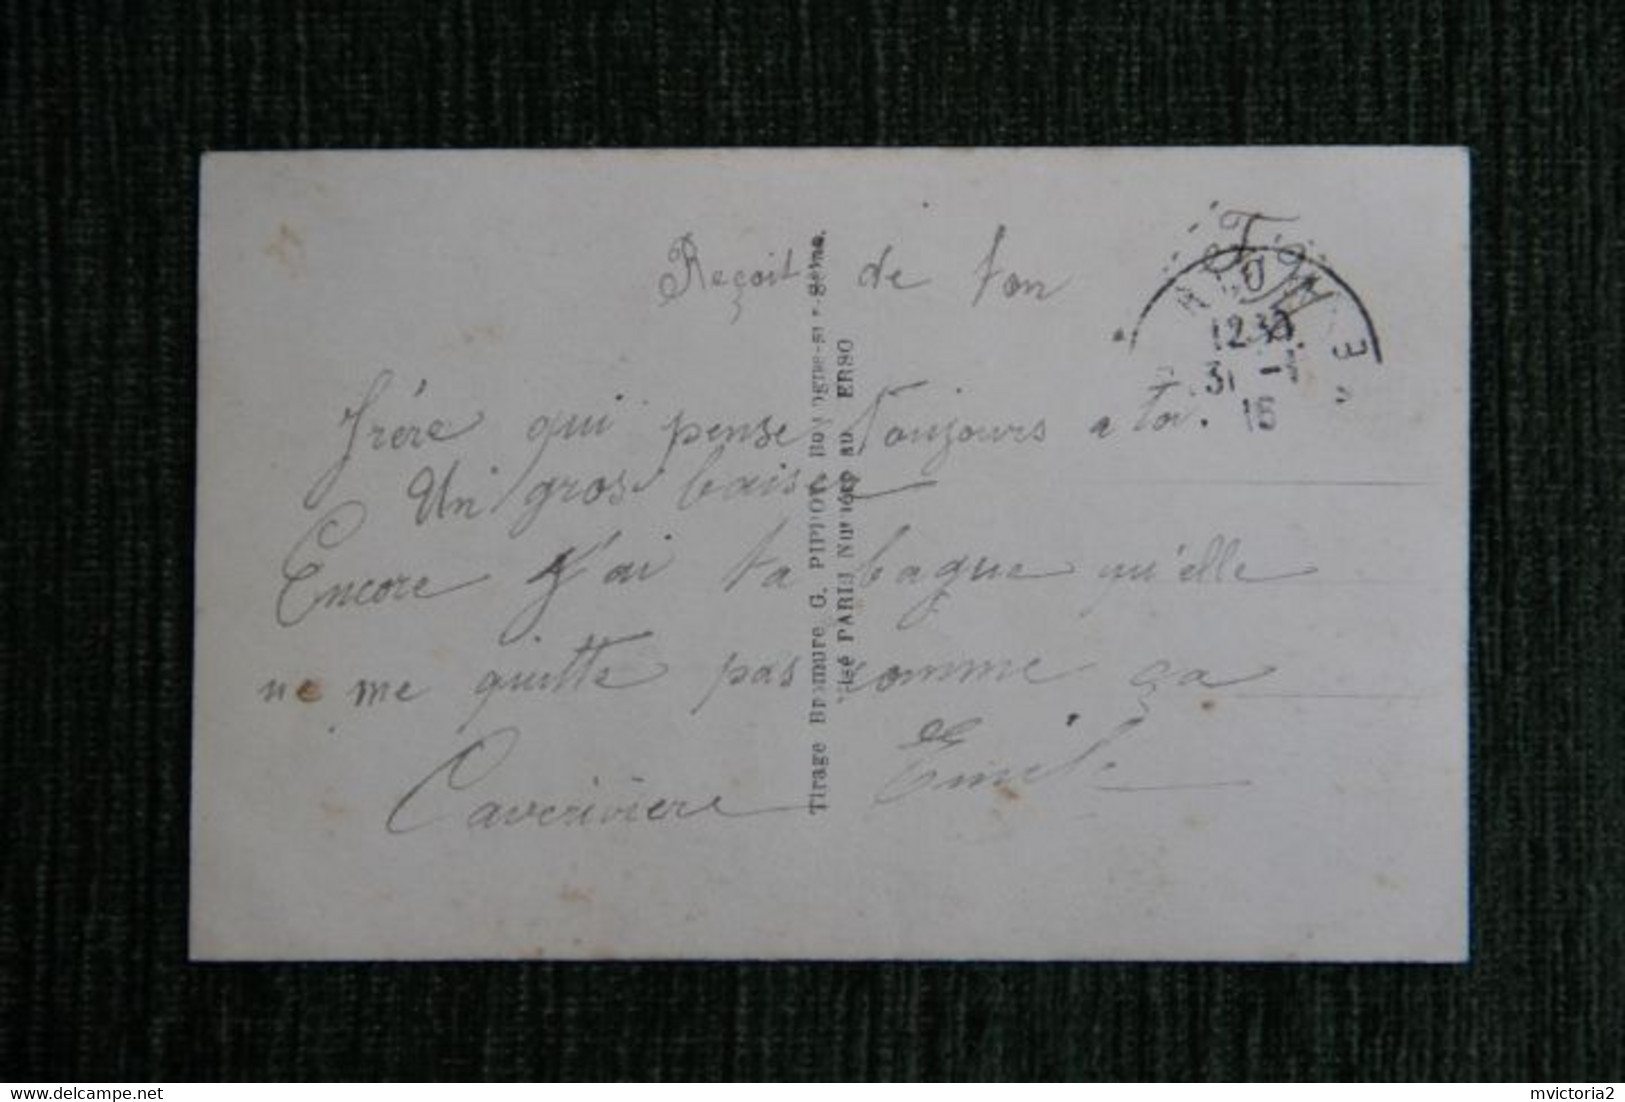 Reçoit de ton
frère qui pense toujours a toi.
Un gros baiser
Encore J'ai ta bague qu'elle
ne me quitte pas comme ça
Caverivière Emile
12 30
31 -1
16
Tirage Bromure G. PIPROT, Boulogne-sur-Seine.
Visé PARIS Numéro au VERSO
Delcampe.net
mvictoria2